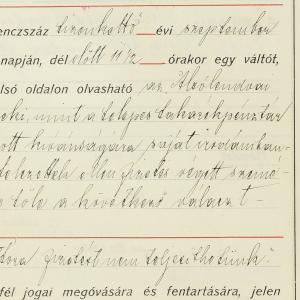 enczszáz tizenkettő évi szeptember
napján, dél előtt 11 1/2 órakor egy váltót,
lső oldalon olvasható az Alsólendvai
ki mint a telepes takarékpénztár
ott kívánságára saját irodámban
ellen fizetés végett szemé-
s tőle a következő választ -
fizetést nem teljesíthetünk".
fél jogai megóvására és fentartására, jelen